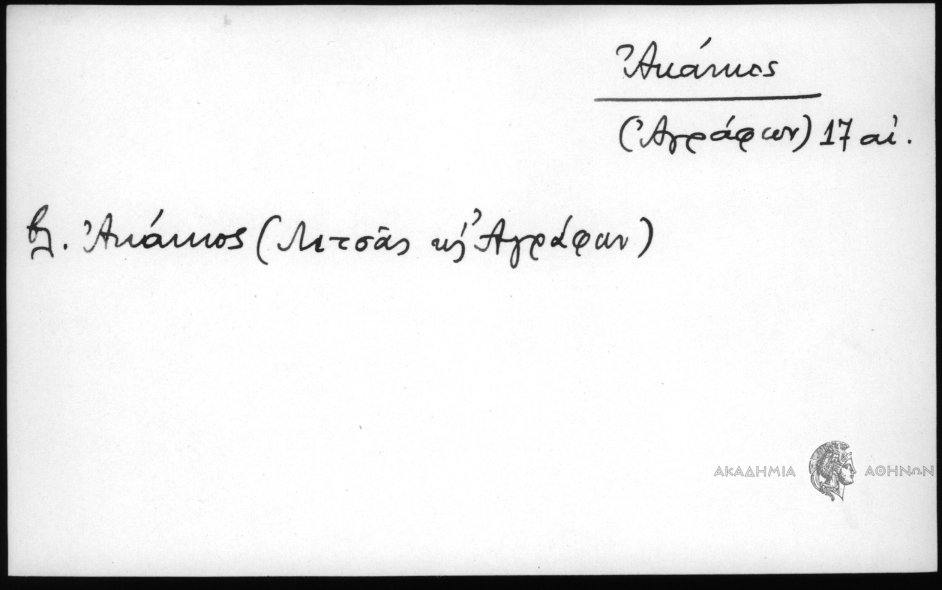 Ἀκάκιος
(Ἀγράφων) 17 αἰ.
βλ. Ἀκάκιος (Λιτσᾶς κ Ἀγράφων)
ΑΚΑΔΗΜΙΑ ΑΘΗΝΩΝ